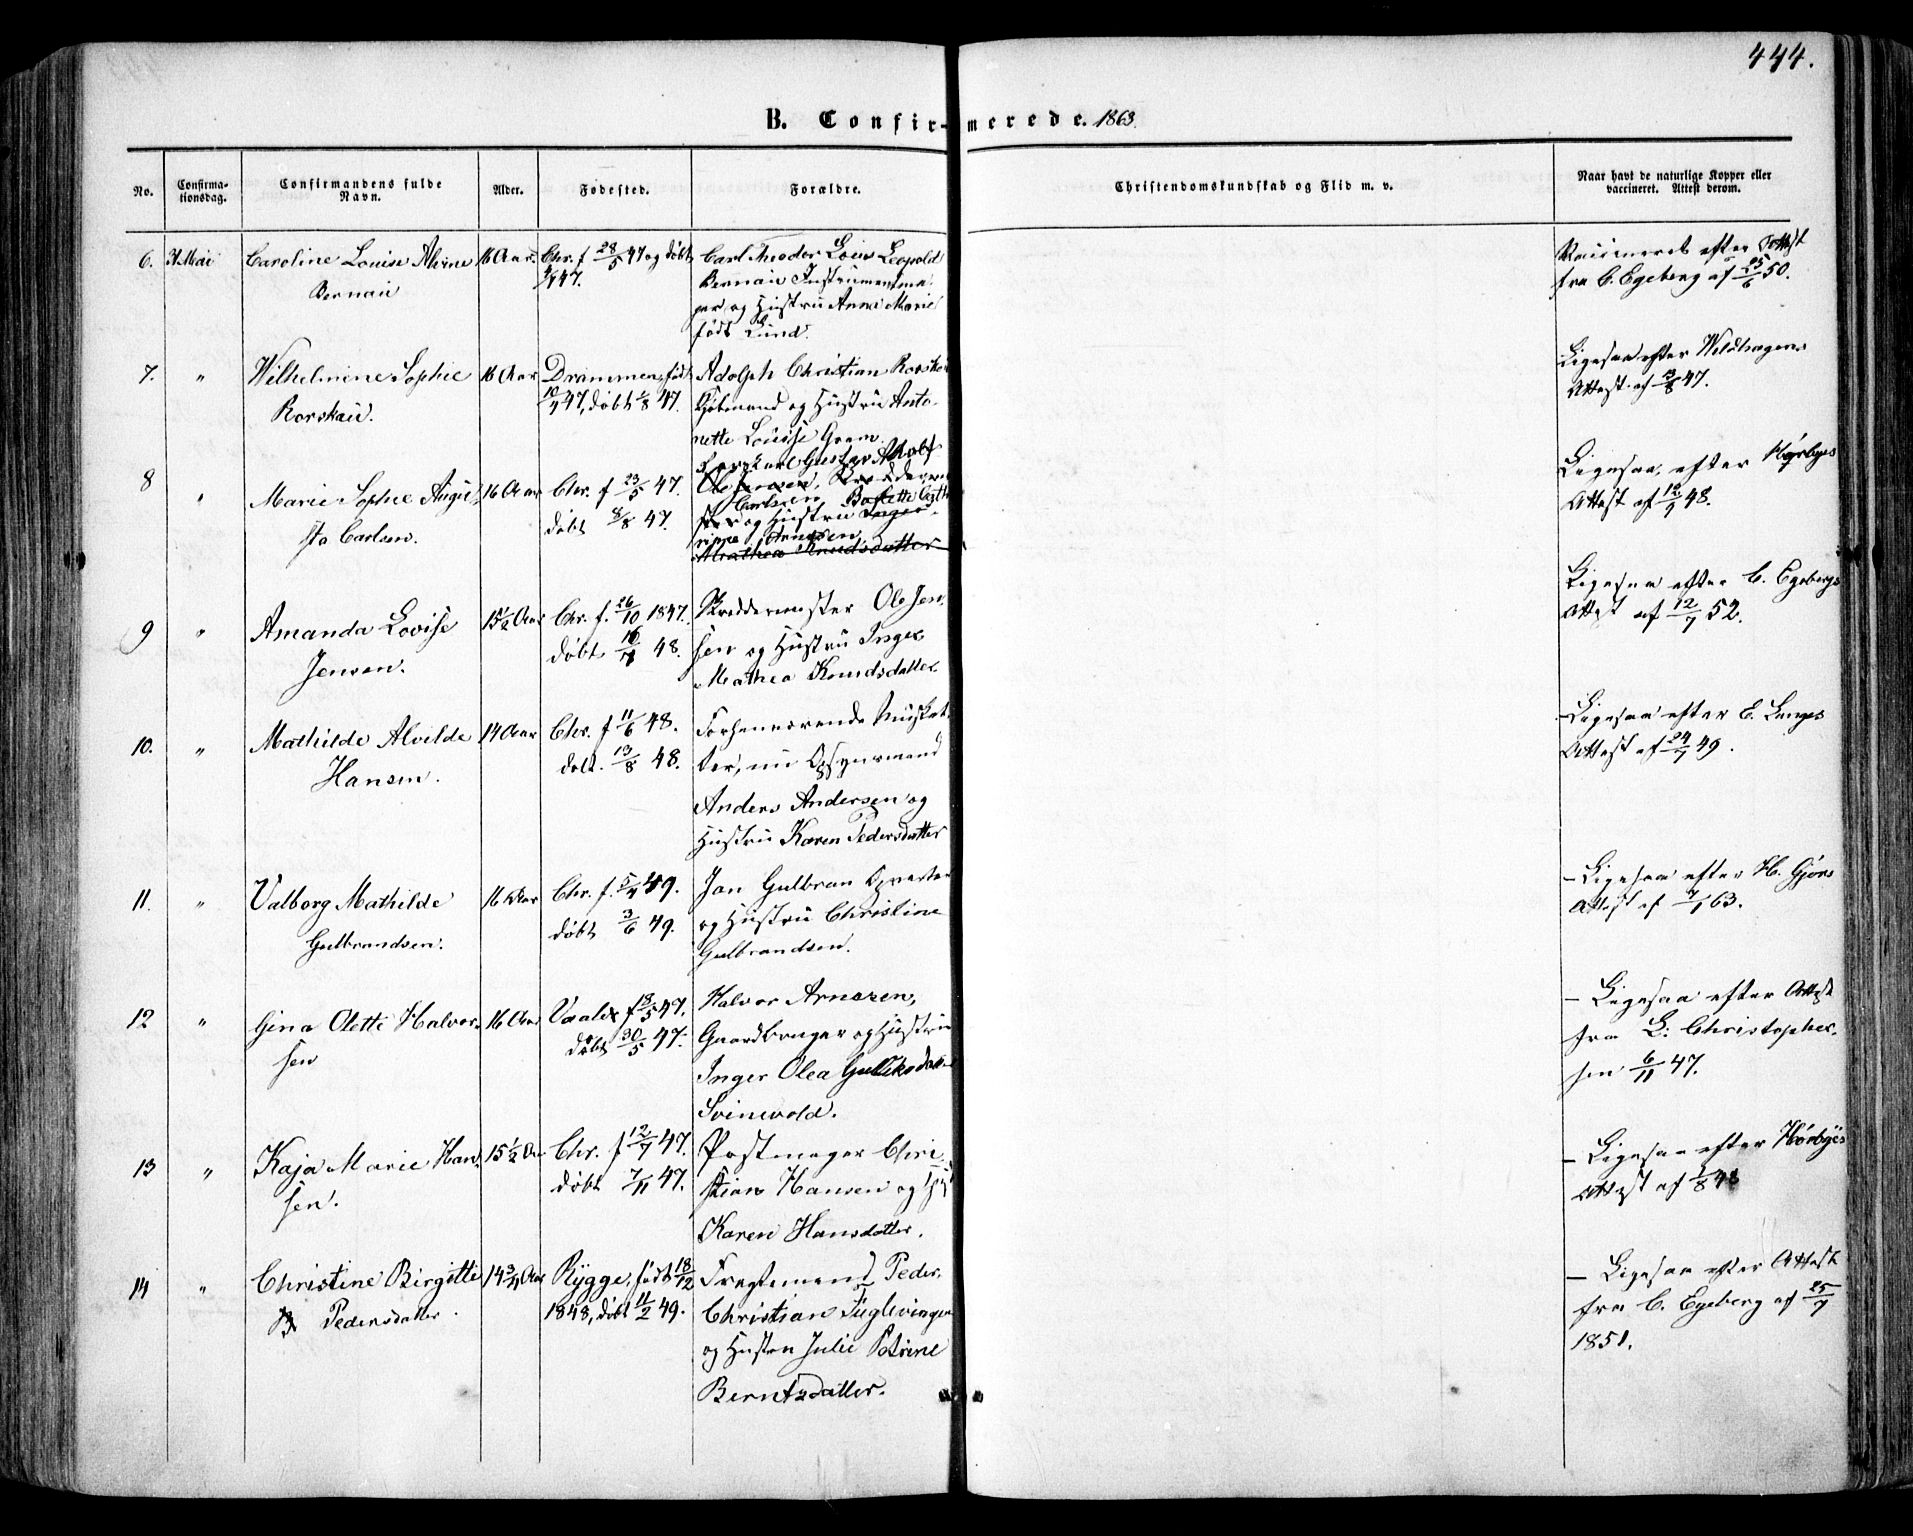 444.
B. Confir- merede. 1863.
No.
Confirma-
tionsdag.
Confirmandens fulde
Navn.
Alder.
Fødested.
Forældre.
Christendomskundskab og Flid m. v.
Naar havt de naturlige Kopper eller
vaccineret. Attest derom.
6. Mai Caroline Louise Alvine 16 Aar. Chr. f 28/5 47 og døbt Carl Theodor Louis Leopold
Bernau 47. Bernau Instrumentma-
ger og Hustru Anne Marie
født Lund.
Vaccineret efter Attest
fra C. Egeberg af 25/6 50.
7. " Wilhelmine Sophie 16 Aar Drammen, født Adolph Christian Rorskau
Rorskau. 10/4 47, døbt 1/8 47. Kjøbmand og Hustru Anto-
nette Louise Gram.
Ligesaa efter Wildhagens
Attest af 3/8 47.
8 " Marie Sophie Augu- 16 Aar Chr. f 23/5 47. Carl Gustav Adolf
Ole Jensen, Skrædderme
sta Carlsen. døbt 8/8 47. Carlsen Bolette Cath
ster og Hustru Inger
rine Arnesen
Mathea Knudsdatter
Ligesaa, efter Hørbyes
Attest af 12/9 48.
9 " Amanda Lovise 15½ Aar Chr. f. 26/10 1847. Skræddermester Ole Jen-
Jensen. døbt 16/4 48. sen og Hustru Inger
Mathea Knudsdatter
Ligesaa efter C. Egebergs
Attest af 12/7 52.
10. " Mathilde Alvilde 14 Aar Chr. f 11/6 48. Forhenværende Musket-
Hansen. døbt. 13/8 48. ter, nu Opsynsmand
Anders Andersen og
Hustru Karen Pedersdatter
Ligesaa efter E. Langes
Attest af 24/7 49.
11. " Valborg Mathilde 16 Aar Chr. f. 5/4 49. Jan Gulbran Opvarter
Gulbrandsen. døbt 3/6 49. og Hustru Christine
Gulbrandsen.
– Ligesaa efter H. Gjørs
Attest af 7/1 63.
12 " Gina Olette Halvor- 16 Aar Vaaler f 18/5 47. Halvor Arnesen,
sen døbt 30/5 47. Gaardbruger og Hustru
Inger Olea Gulliksdatter
Svinevold.
– Ligesaa efter Attest
fra L. Christopher-
sen 6/11 47.
13 " Kaja Marie Han- 15½ Aar Chr. f 12/7 47. Postmager Chri-
sen. døbt 7/11 47. stian Hansen og H
Karen Hansdatter.
– Ligesaa efter Hørbyes
Attest af 2/8 48
14 " Christine Birgitte 14¾ Aar Rygge, født 18/12 Fragtemand Peder
Pedersdatter. 1848, døbt 11/2 49. Christian Fuglevingen
og Hustru Julie Petrine
Berntsdatter.
– Ligesaa efter Attest
fra C. Egeberg af 25/7
1851.